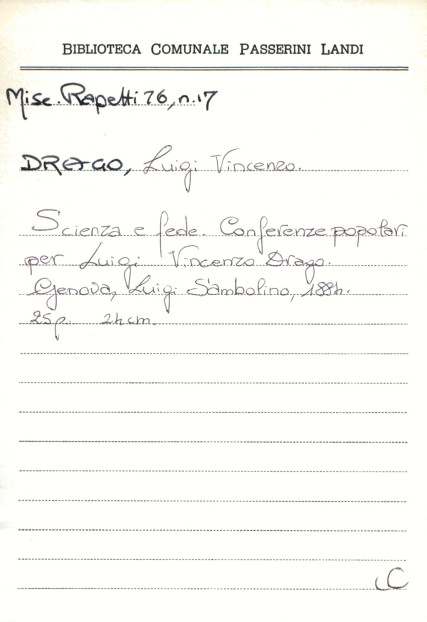 BIBLIOTECA COMUNALE PASSERINI LANDI
Misc. Rapetti 76, n.17
DRAGO, Luigi Vincenzo.
Scienza e fede. Conferenze popolari
per Luigi Vincenzo Drago.
Genova, Luigi Sambolino, 1884.
25p. 24cm.
C